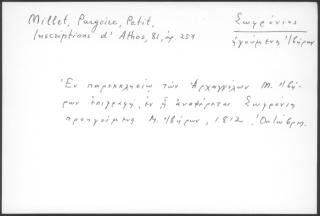 Millet, Pargoire, Petit,
Inscriptions d'Athos, 81, ἀρ. 254
Σωφρόνιος
ἡγούμενος Ἰβήρων
Ἐν παρεκκλησίῳ τῶν Ἀρχαγγέλων Μ. Ἰβή-
ρων ἐπιγραφή, ἐν ᾗ ἀναφέρεται Σωφρόνιος
προηγούμενος Μ. Ἰβήρων, 1812 Ὀκτώβρη.